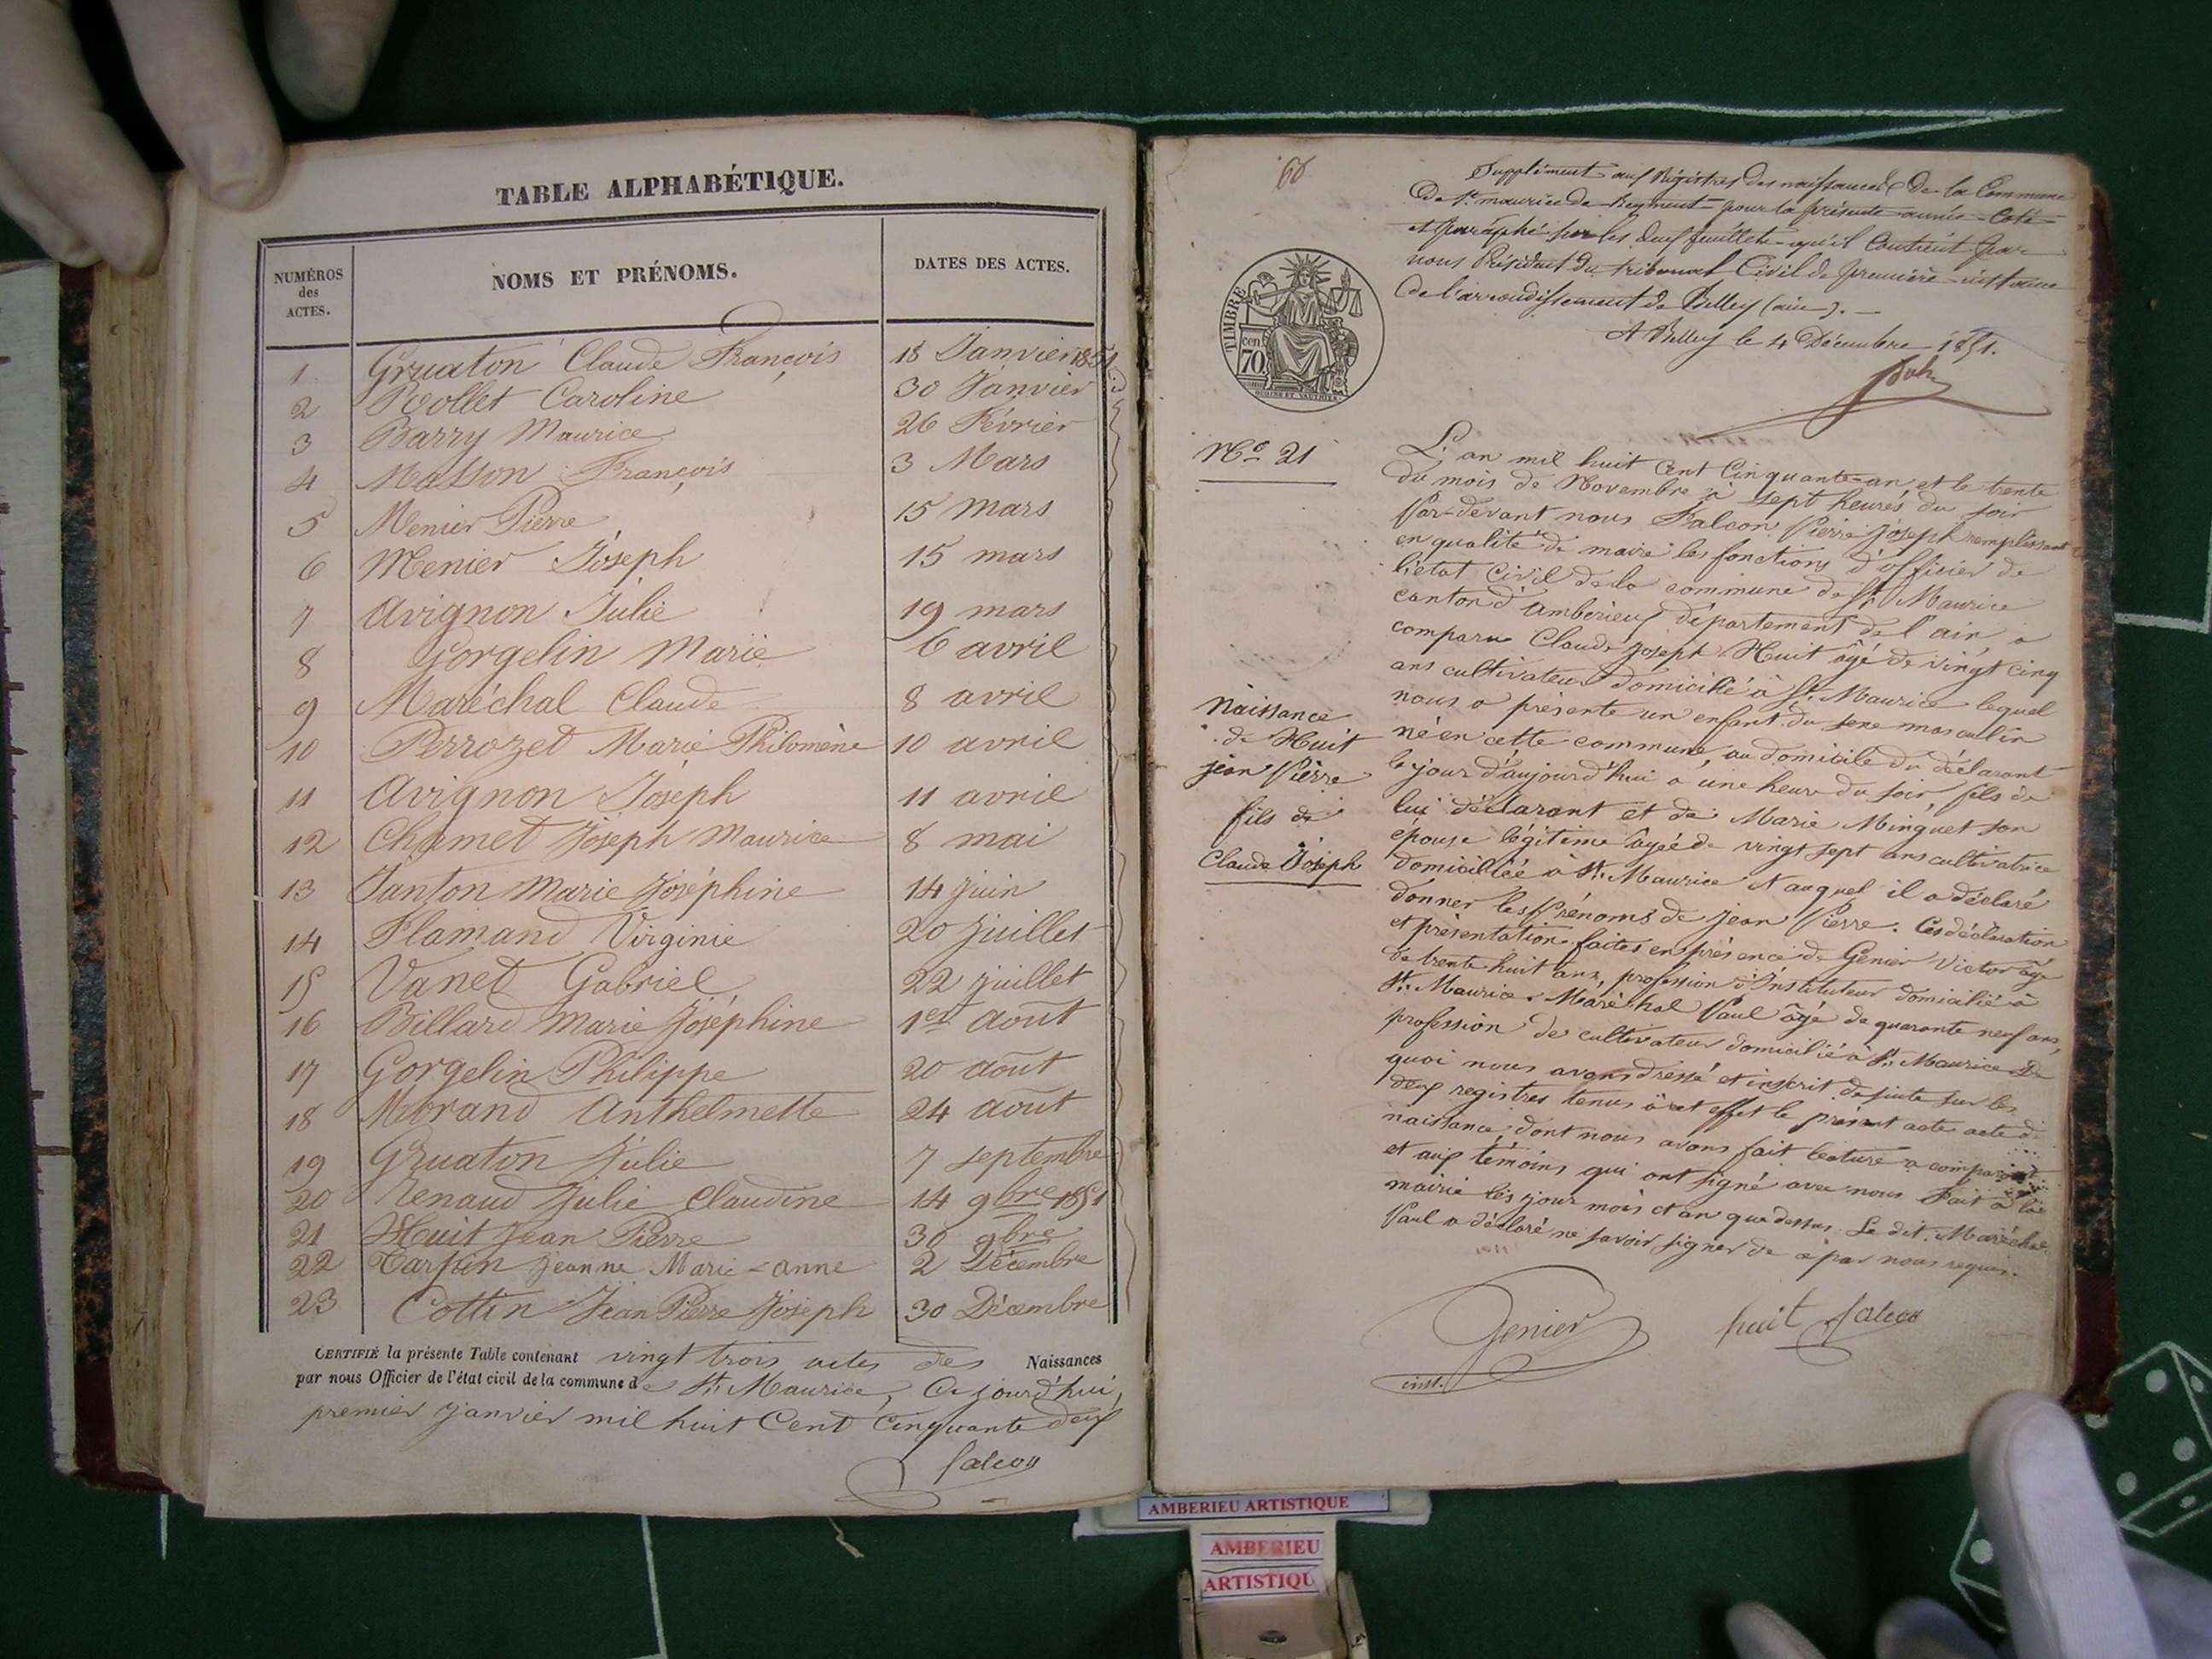 TABLE ALPHABÉTIQUE.
NUMÉROS
des
ACTES.
NOMS ET PRÉNOMS.
DATES DES ACTES.
1 Gruaton Claude François 18 Janvier 1851
2 Pollet Caroline 30 Janvier id
3 Barry Maurice 26 Février
4 Masson François 3 Mars
5 Menier Pierre 15 mars
6 Menier Joseph 15 mars
7 Avignon Julie 19 mars
8 Gorgelin Marie 6 avril
9 Maréchal Claude 8 avril
10 Perrozet Marie Philomène 10 avril
11 Avignon Joseph 11 avril
12 Chamet Joseph Maurice 8 mai
13 Janton Marie Joséphine 14 juin
14 Flamand Virginie 20 juillet
15 Vanet Gabriel 22 juillet
16 Billard Marie Joséphine 1er août
17 Gorgelin Philippe 20 août
18 Morand Anthelmette 24 août
19 Gruaton Julie 7 septembre
20 Renaud Julie Claudine 14 9bre 1851
21 Huit Jean Pierre 30 9bre
22 Tarpin Jeanne Marie-anne 2 Décembre
23 Cottin Jean Pierre Joseph 30 Décembre
CERTIFIÉ la présente Table contenant vingt trois actes des Naissances
par nous Officier de l'état civil de la commune de St. Maurice, Ce jourd'hui,
premier janvier mil huit Cent Cinquante deux
falcon
66
Supplément aux Régistres des naissances de la Commune
De St. maurice de Remens pour la présente année Coté
et paraphé sur les deux feuillets qu'il Contient par
nous Président du tribunal Civil de première instance
de l'arrondissement de Belley (ain). —
A Belley le 4 Décembre 1851.
TIMBRE
cen
70.
No 21
L'an mil huit Cent Cinquante-un et le trente
du mois de Novembre à sept heures du soir
Par-devant nous Falcon Pierre Joseph remplissant
en qualité de maire les fonctions d'officier de
l'état Civil de la commune de St. Maurice
canton d'Amberieux département de l'ain, a
comparu Claude Joseph Huit âgé de vingt cinq
ans cultivateur domicilié à St. Maurice lequel
nous a présenté un enfant du sexe masculin
né en cette commune, au domicile du déclarant
le jour d'aujourd'hui a une heure du soir, fils de
lui déclarant et de Marie Minguet son
epouse légitime agée de vingt sept ans cultivatrice
domiciliée à St. Maurice et auquel il a déclaré
donner les Prénoms de Jean Pierre. Ces déclaration
et présentation faites en présence de Genier Victor âgé
de trente huit ans, profession d'Instituteur domicilié à
St. Maurice. Maréchal Paul âgé de quarante neuf ans,
profession de cultivateur domicilié à St. Maurice De
quoi nous avons dressé et inscrit de suite sur les
deux registres tenus à cet effet le présent acte acte de
naissance, dont nous avons fait lecture a comparant
et aux témoins qui ont signé avec nous Fait à la
mairie les jour mois et an que dessus. Le dit. Maréchal
Paul a déclaré ne savoir signer de ce par nous requis.
Naissance
de Huit
jean Pierre
fils de
Claude Joseph
Genier
inst.
huit falcon
AMBERIEU ARTISTIQUE
AMBERIEU
ARTISTIQU